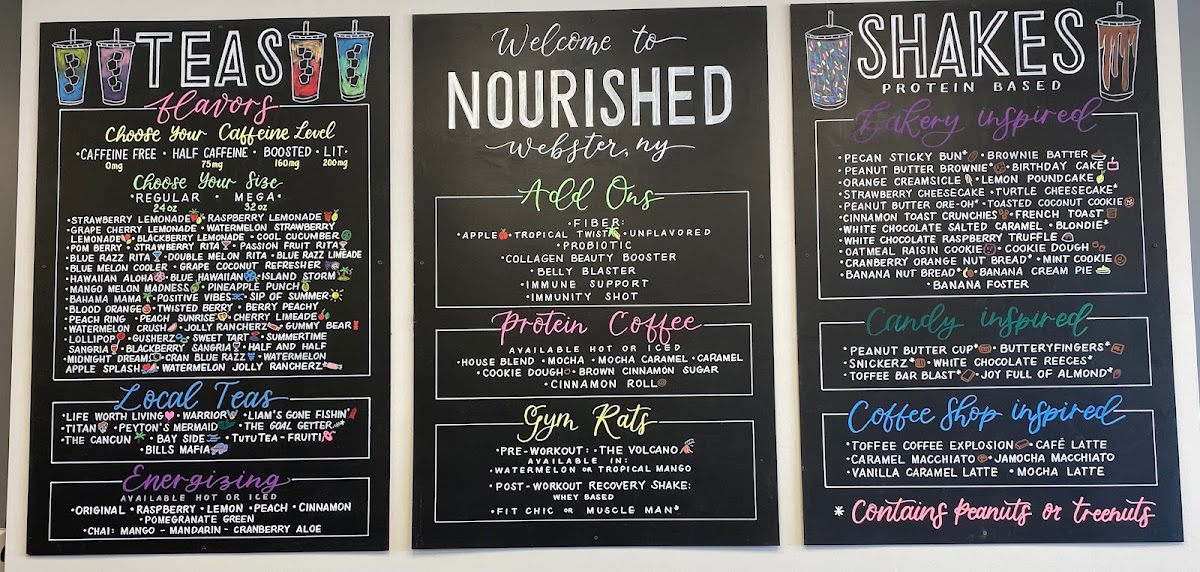 TEAS
Flavors
Choose Your Caffeine Level
•CAFFEINE FREE • HALF CAFFEINE • BOOSTED • LIT•
0mg 75mg 160mg 200mg
Choose Your Size
•REGULAR • MEGA•
24 oz 32 oz
•STRAWBERRY LEMONADE •RASPBERRY LEMONADE
•GRAPE CHERRY LEMONADE •WATERMELON STRAWBERRY
LEMONADE •BLACKBERRY LEMONADE •COOL CUCUMBER
•POM BERRY •STRAWBERRY RITA •PASSION FRUIT RITA
•BLUE RAZZ RITA •DOUBLE MELON RITA •BLUE RAZZ LIMEADE
•BLUE MELON COOLER •GRAPE COCONUT REFRESHER
•HAWAIIAN ALOHA •BLUE HAWAIIAN •ISLAND STORM
•MANGO MELON MADNESS •PINEAPPLE PUNCH
•BAHAMA MAMA •POSITIVE VIBES •SIP OF SUMMER
•BLOOD ORANGE •TWISTED BERRY •BERRY PEACHY
•PEACH RING •PEACH SUNRISE •CHERRY LIMEADE
•WATERMELON CRUSH •JOLLY RANCHERZ •GUMMY BEAR
•LOLLIPOP •GUSHERZ •SWEET TART •SUMMERTIME
SANGRIA •BLACKBERRY SANGRIA •HALF AND HALF
•MIDNIGHT DREAM •CRAN BLUE RAZZ •WATERMELON
APPLE SPLASH •WATERMELON JOLLY RANCHERZ
Local Teas
•LIFE WORTH LIVING •WARRIOR •LIAM'S GONE FISHIN'
•TITAN •PEYTON'S MERMAID •THE GOAL GETTER
•THE CANCUN •BAY SIDE •TUTU TEA-FRUITI
•BILLS MAFIA
Energizing
AVAILABLE HOT OR ICED
•ORIGINAL •RASPBERRY •LEMON •PEACH •CINNAMON
•POMEGRANATE GREEN
•CHAI: MANGO - MANDARIN - CRANBERRY ALOE
Welcome to
NOURISHED
Webster, ny
Add Ons
•FIBER:
•APPLE •TROPICAL TWIST •UNFLAVORED
•PROBIOTIC
•COLLAGEN BEAUTY BOOSTER
•BELLY BLASTER
•IMMUNE SUPPORT
•IMMUNITY SHOT
Protein Coffee
AVAILABLE HOT OR ICED
•HOUSE BLEND •MOCHA •MOCHA CARAMEL •CARAMEL
•COOKIE DOUGH •BROWN CINNAMON SUGAR
•CINNAMON ROLL
Gym Rats
•PRE-WORKOUT: •THE VOLCANO
AVAILABLE IN:
•WATERMELON OR TROPICAL MANGO
•POST-WORKOUT RECOVERY SHAKE:
WHEY BASED
•FIT CHIC OR MUSCLE MAN*
SHAKES
PROTEIN BASED
Bakery inspired
•PECAN STICKY BUN* •BROWNIE BATTER
•PEANUT BUTTER BROWNIE* •BIRTHDAY CAKE
•ORANGE CREAMSICLE •LEMON POUNDCAKE
•STRAWBERRY CHEESECAKE •TURTLE CHEESECAKE*
•PEANUT BUTTER ORE-OH* •TOASTED COCONUT COOKIE
•CINNAMON TOAST CRUNCHIES •FRENCH TOAST
•WHITE CHOCOLATE SALTED CARAMEL •BLONDIE*
•WHITE CHOCOLATE RASPBERRY TRUFFLE
•OATMEAL RAISIN COOKIE •COOKIE DOUGH
•CRANBERRY ORANGE NUT BREAD* •MINT COOKIE
•BANANA NUT BREAD* •BANANA CREAM PIE
•BANANA FOSTER
Candy inspired
•PEANUT BUTTER CUP* •BUTTERYFINGERS*
•SNICKERZ* •WHITE CHOCOLATE REECES*
•TOFFEE BAR BLAST* •JOY FULL OF ALMOND*
Coffee Shop inspired
•TOFFEE COFFEE EXPLOSION •CAFÉ LATTE
•CARAMEL MACCHIATO •JAMOCHA MACCHIATO
•VANILLA CARAMEL LATTE •MOCHA LATTE
* Contains Peanuts or treenuts